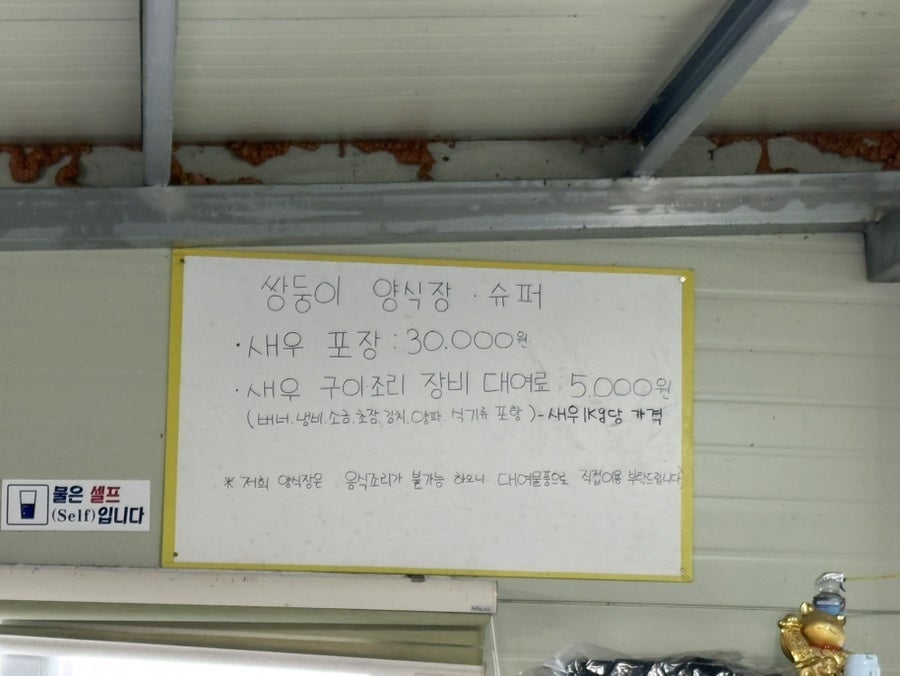 쌍둥이 양식장 · 슈퍼
· 새우 포장 : 30.000원
· 새우 구이조리 장비 대여료 : 5.000원
(버너. 냄비. 소금. 초장. 김치. 양파. 식기류 포함) - 새우1kg당 가격
※ 저희 양식장은 음식조리가 불가능 하오니 대여물품으로 직접이용 부탁드립니다
물은 셀프
(Self)입니다